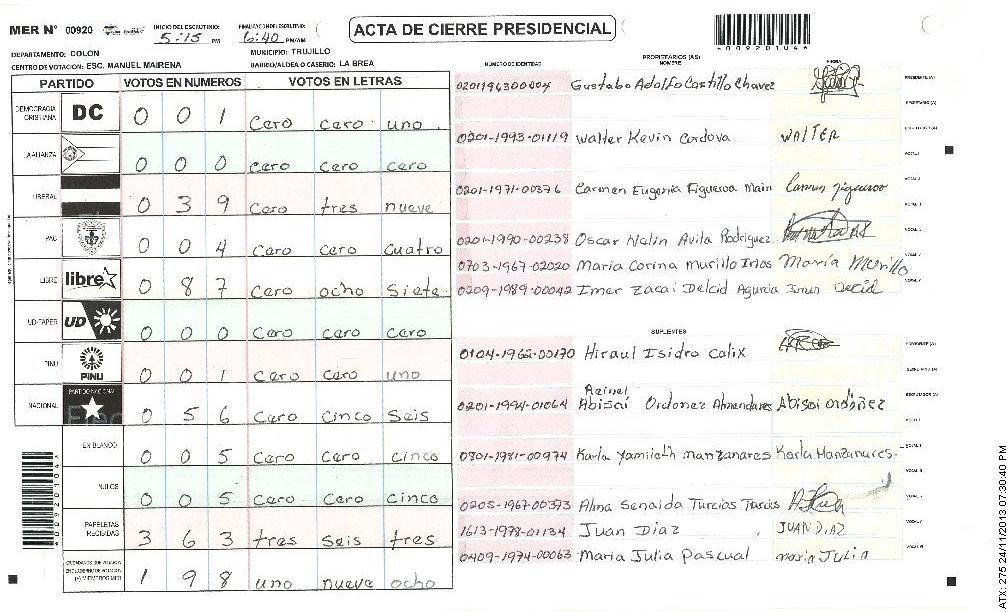 MER N° 00920
INICIO DEL ESCRUTINIO: 5:15 PM
FINALIZACION DEL ESCRUTINIO: 6:40 PM/AM
ACTA DE CIERRE PRESIDENCIAL
0092010 4
DEPARTAMENTO: COLON
MUNICIPIO: TRUJILLO
CENTRO DE VOTACION: ESC. MANUEL MAIRENA
BARRIO/ALDEA O CASERIO: LA BREA
PARTIDO VOTOS EN NUMEROS VOTOS EN LETRAS
DEMOCRACIA CRISTIANA DC 0 0 1 cero cero uno
LA ALIANZA 0 0 0 cero cero cero
LIBERAL 0 3 9 cero tres nueve
PAC 0 0 4 cero cero cuatro
LIBRE libre 0 8 7 cero ocho siete
UD-FAPER UD 0 0 0 cero cero cero
PINU PINU 0 0 1 cero cero uno
NACIONAL PARTIDO NACIONAL 0 5 6 cero cinco seis
EN BLANCO 0 0 5 cero cero cinco
NULOS 0 0 5 cero cero cinco
PAPELETAS RECIBIDAS 3 6 3 tres seis tres
CIUDADANOS QUE VOTARON EN CUADERNO DE VOTACION (+) MIEMBROS MER 1 9 8 uno nueve ocho
NUMERO DE IDENTIDAD PROPIETARIOS (AS) NOMBRE FIRMA
0201196300004 Gustabo Adolfo Castillo Chavez PRESIDENTE (A)
SECRETARIO (A)
0201-1993-01119 Walter Kevin Cordova WALTER ESCRUTADOR (A)
VOCAL I
0201-1971-00376 Carmen Eugenia Figueroa Main Carmen Figueroa
0201-1990-00238 Oscar Nalin Avila Rodriguez
0703-1967-02020 Maria Corina Murillo Irias María Murillo
0209-1989-00042 Imer Zacai Delcid Agurcia Imer Delcid
SUPLENTES
0104-1962-00170 Hiraul Isidro Calix PRESIDENTE (A)
SECRETARIO (A)
0201-1994-01064 Reinel Abisai Ordonez Almendares Abisai Ordoñez ESCRUTADOR (A)
0801-1981-00974 Karla Yamileth Manzanares Karla Manzanares.
0205-1967-00373 Alma Senaida Turcios Turcios
1613-1978-01134 Juan Diaz JUAN DIAZ
0409-1974-00063 Maria Julia Pascual maria JULIA
ATX: 275 24/11/2013 07:30:40 PM